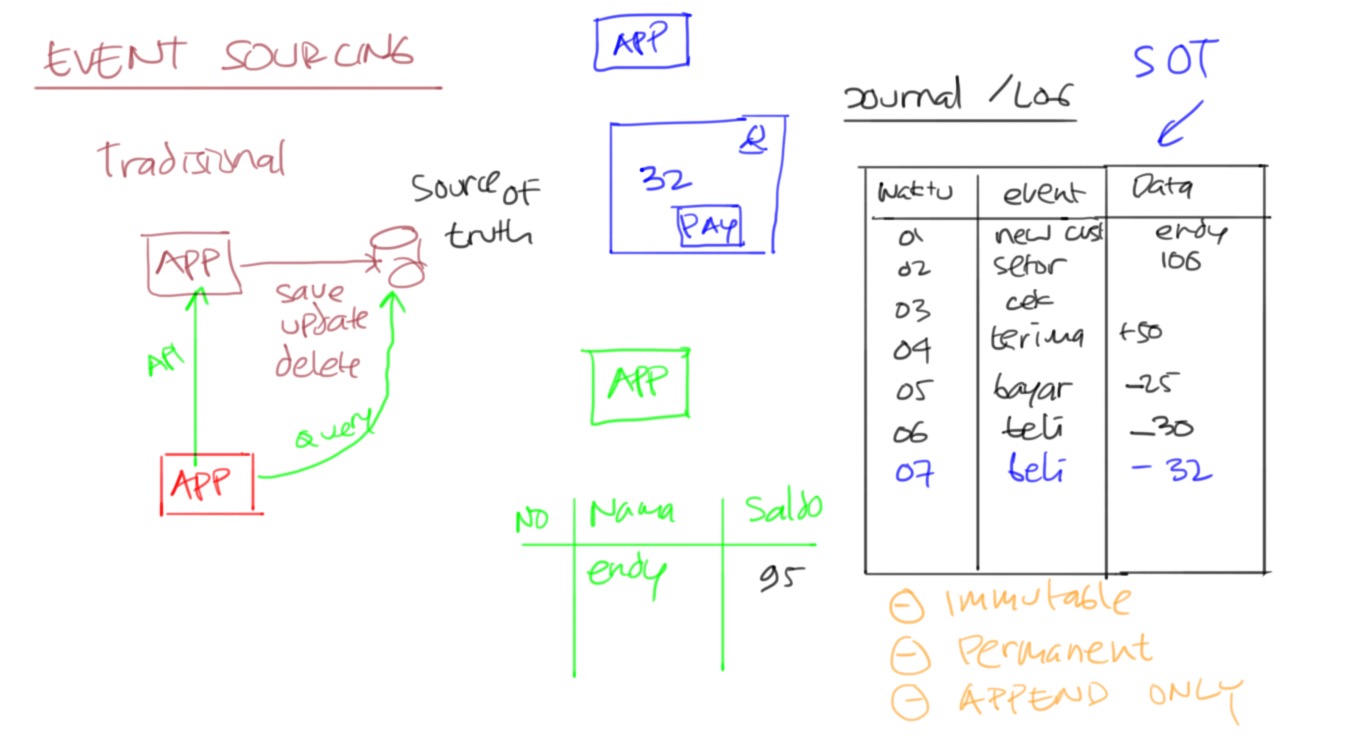 EVENT SOURCING
Tradisional
APP
save
update
delete
Source of
truth
API
query
APP
APP
32
PAY
APP
NO Nama Saldo
endy 95
Journal / LOG
SOT
Waktu event Data
01 new cust endy
02 setor 100
03 cek
04 terima +50
05 bayar -25
06 beli -30
07 beli - 32
Immutable
Permanent
APPEND ONLY